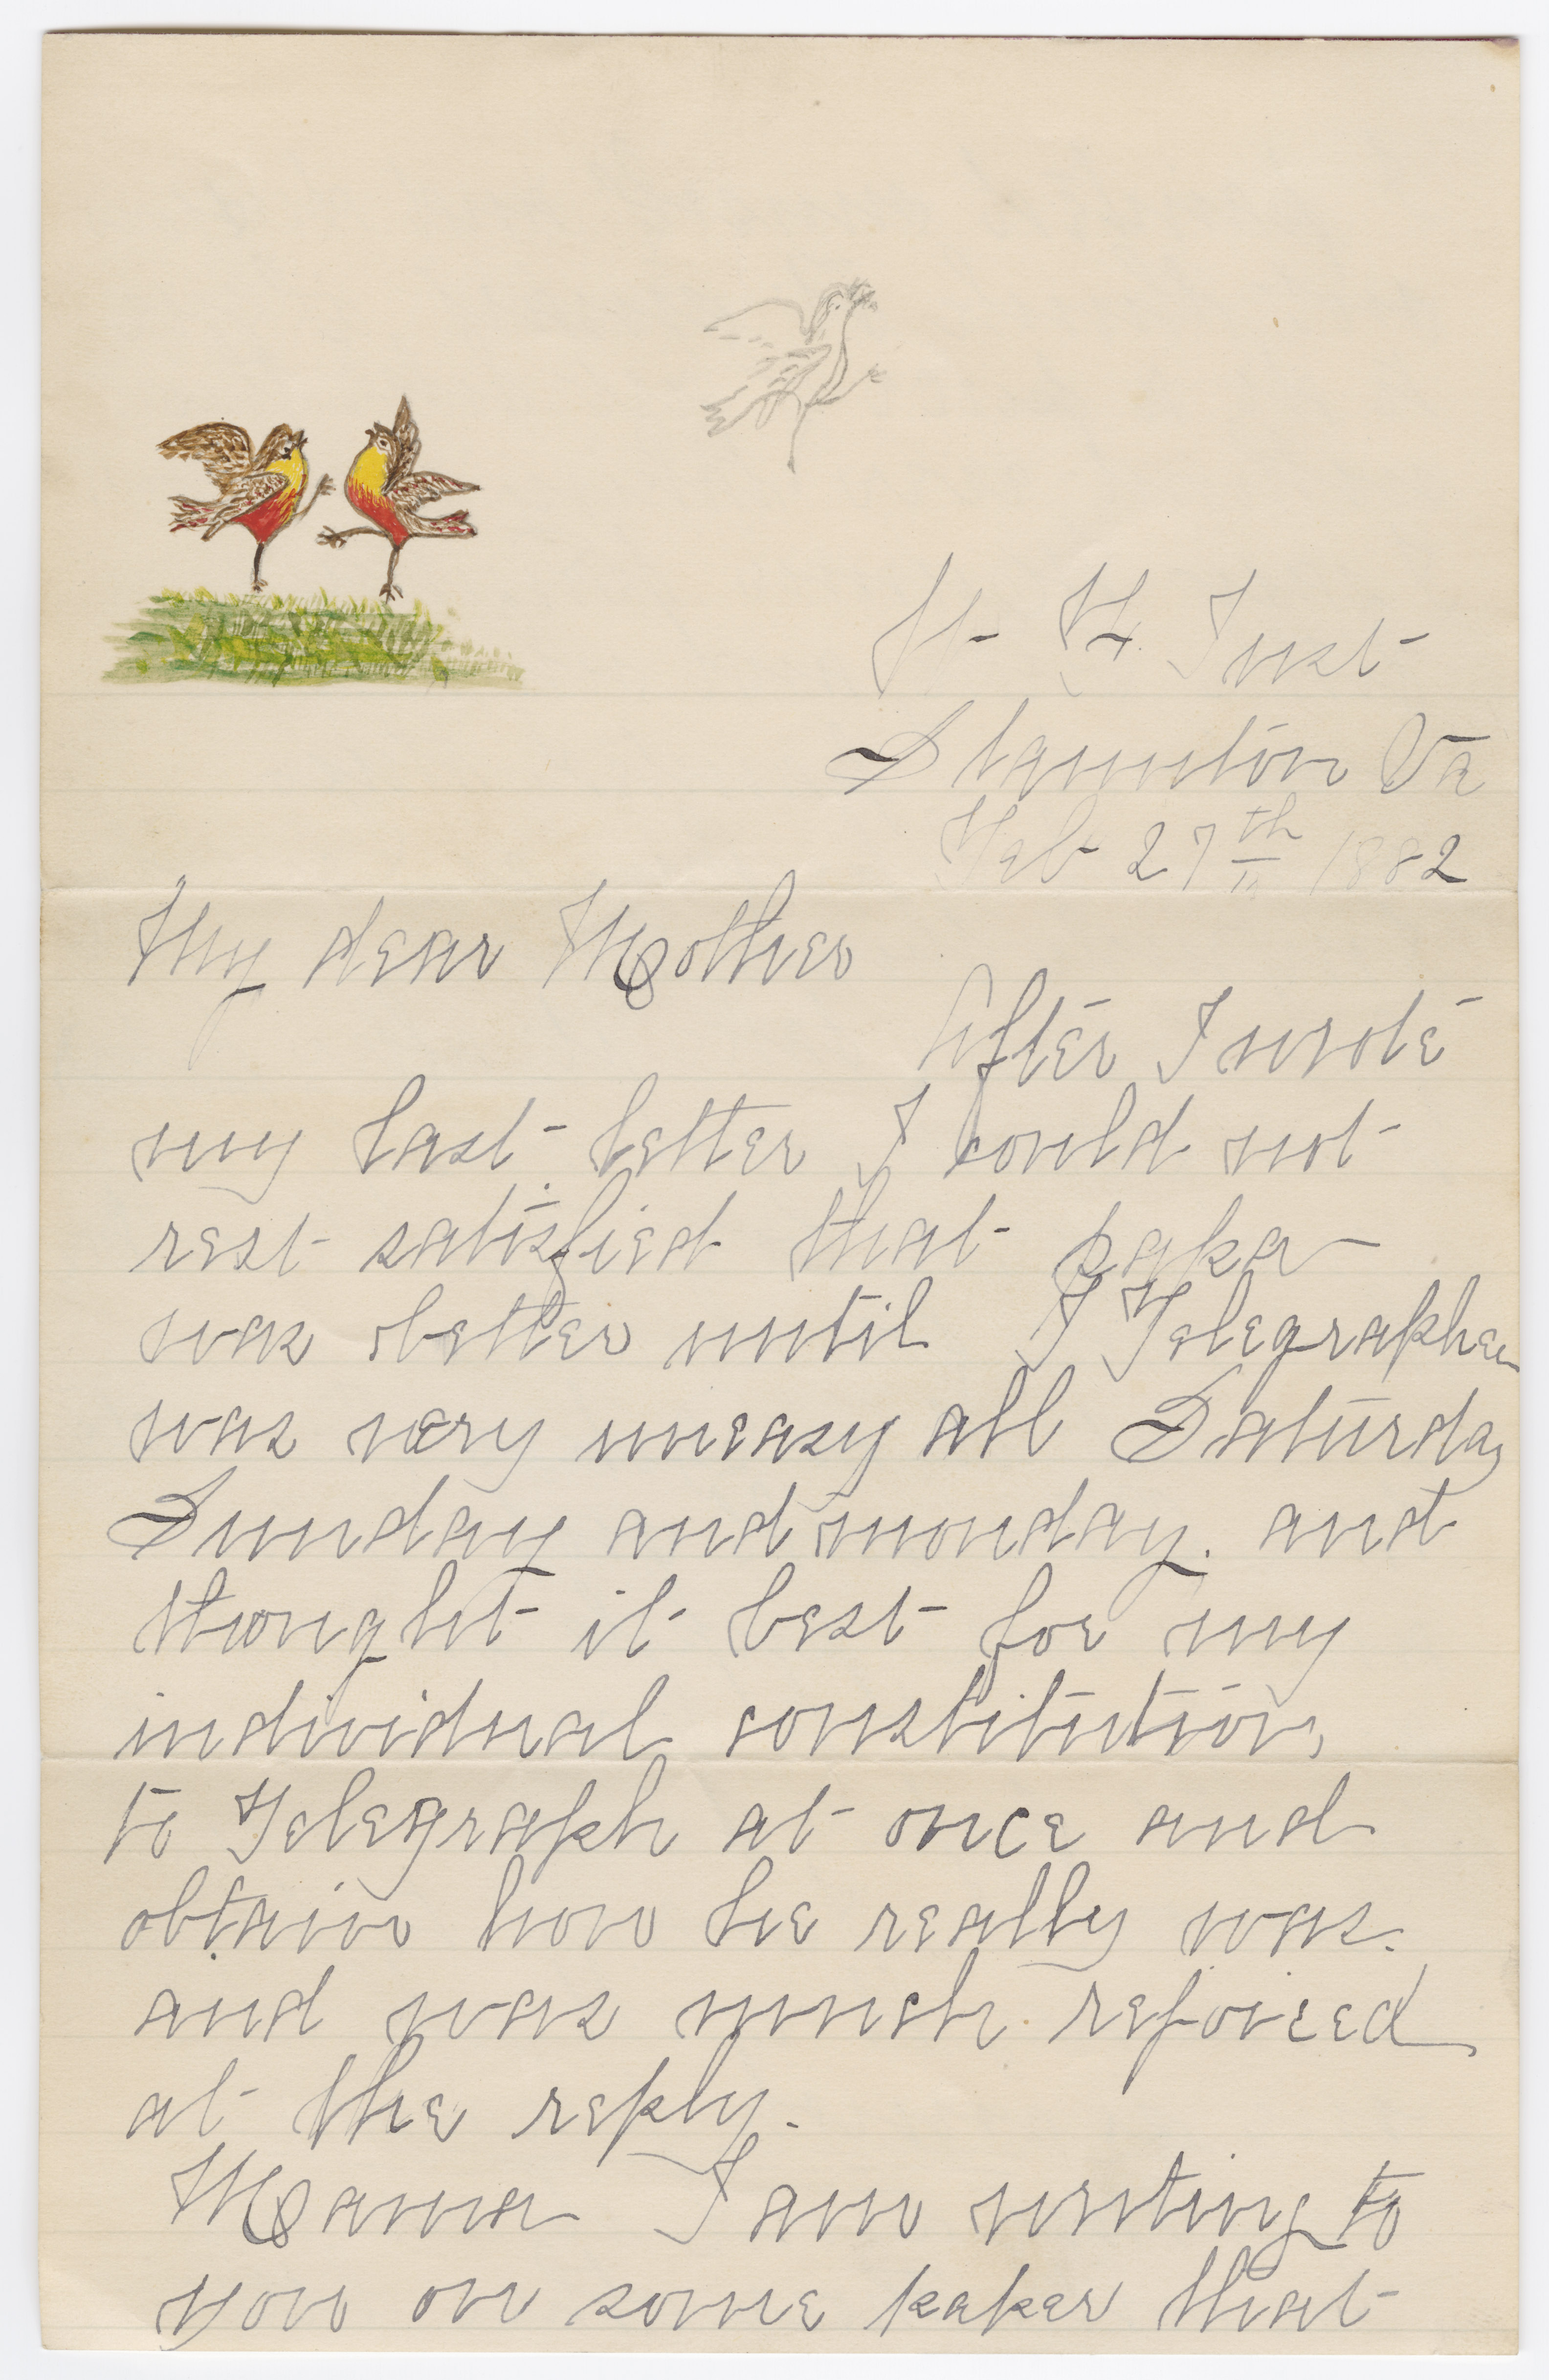 W. F. Inst
Staunton Va
Feb 27th 1882
My dear Mother
After I wrote
my last letter I could not
rest satisfied that papa
was better until I Telegraphed
was very uneasy all Saturday
Sunday and monday. and
thought it best for my
individual constitution,
to Telegraph at once and
obtain how he really was.
and was much rejoiced
at the reply.
Mama I am writing to
you on some paper that